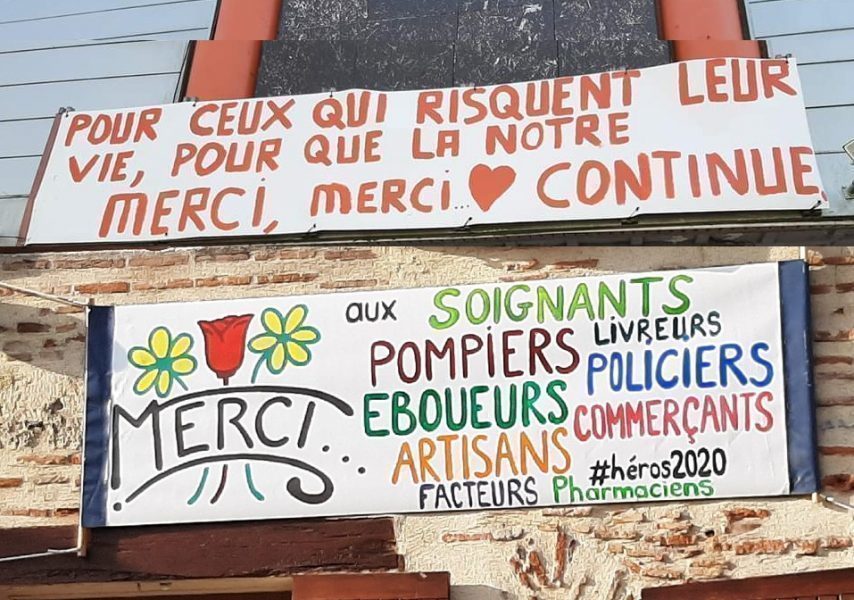 POUR CEUX QUI RISQUENT LEUR
VIE, POUR QUE LA NOTRE
MERCI, MERCI... ♥ CONTINUE.
MERCI...
aux SOIGNANTS
POMPIERS LIVREURS
POLICIERS
EBOUEURS COMMERÇANTS
ARTISANS #héros2020
FACTEURS Pharmaciens